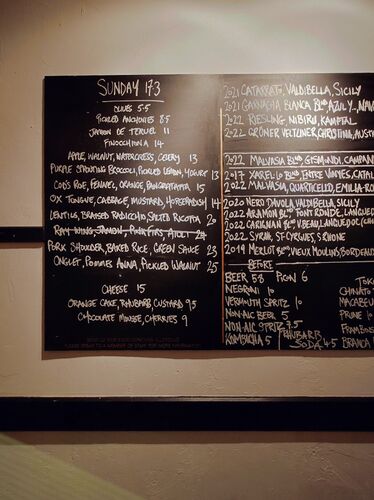 SUNDAY 17.3
OLIVES 5.5
PICKLED ANCHOVIES 8.5
JAMON DE TERUEL 11
FINOCCHIONA 14
APPLE, WALNUT, WATERCRESS, CELERY 13
PURPLE SPROUTING BROCCOLI, PICKLED LEMON, YOGURT 13
COD'S ROE, FENNEL, ORANGE, PANGRATTATA 15
OX TONGUE, CABBAGE, MUSTARD, HORSERADISH 14
LENTILS, BRAISED RADICCHIO, SALTED RICOTTA 20
RAY WING, JANSON, PINK FIRS, AIOLI 24
PORK SHOULDER, BAKED RICE, GREEN SAUCE 23
ONGLET, POMMES ANNA, PICKLED WALNUT 25
CHEESE 15
ORANGE CAKE, RHUBARB CUSTARD 9.5
CHOCOLATE MOUSSE, CHERRIES 9
2021 CATARRATTO, VALDIBELLA, SICILY
2021 GARNACHA BLANCA BLND AZUL Y
2022 RIESLING NIBIRU, KAMPTAL
2022 GRÜNER VELTLINER, CHRISTINA, AUST
2022 MALVASIA BLND, GISMONDI, CAMPAN
2017 XAREL.LO BLND, ENTRE VINYES, CATAL
2022 MALVASIA, QUARTICELLO, EMILIA-RO
2020 NERO D'AVOLA, VALDIBELLA, SICILY
2022 ARAMON BLND FONT RONDE, LANGUED
2022 CARIGNAN BLND V. BEAU, LANGUEDOC
2022 SYRAH, ST-CYRGUES, S. RHONE
2019 MERLOT BLND, VIEUX MOULINS, BORDEAUX
BEFORE
BEER 5.8 PICON 6
NEGRONI 10
VERMOUTH SPRITZ 10
NON-ALC BEER 5
NON-ALC SPRITZ 7.5
KOMBUCHA 5
RHUBARB
SODA 4.5
TOKA
CHINATO
MACABEU
PRUNE
FRAMBOIS
BRANCA